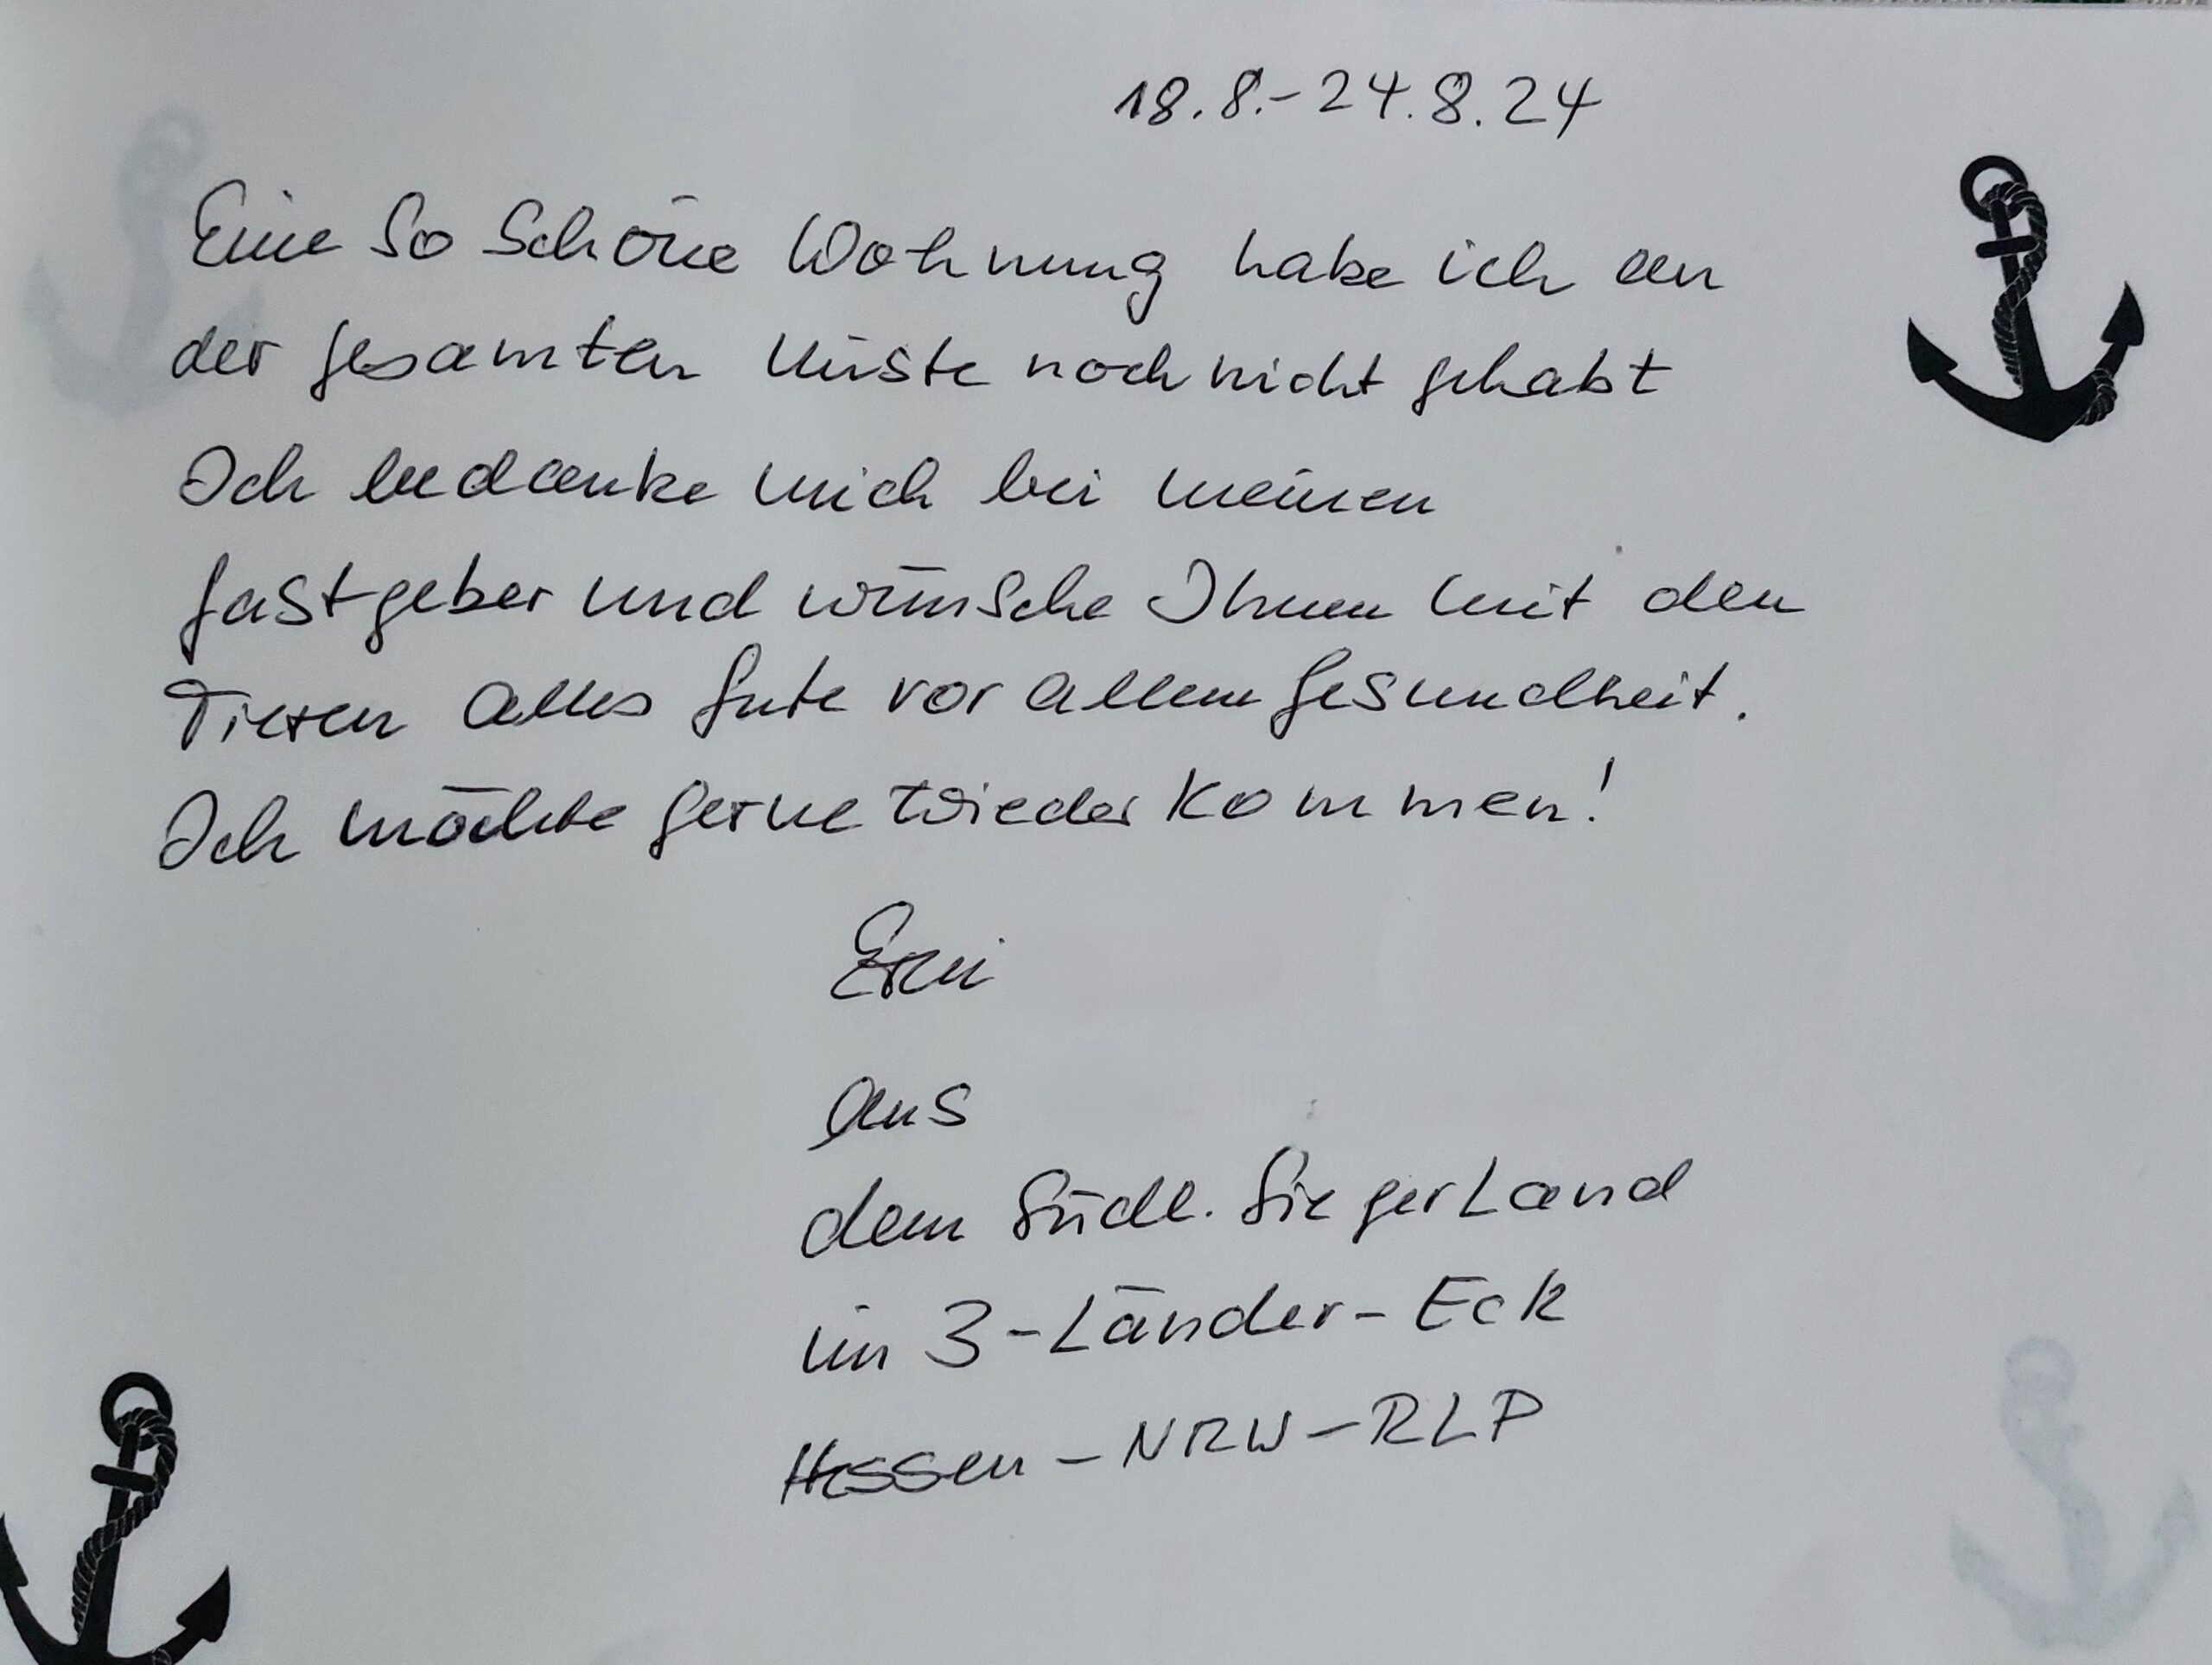 18.8.-24.8.24
Eine so schöne Wohnung habe ich an
der gesamten Küste noch nicht gehabt
Ich bedanke mich bei meinen
Gastgeber und wünsche Ihnen mit den
Tieren alles Gute vor allem Gesundheit.
Ich möchte gerne wieder kommen!
aus
dem Südl. Siegerland
im 3-Länder-Eck
Hessen-NRW-RLP